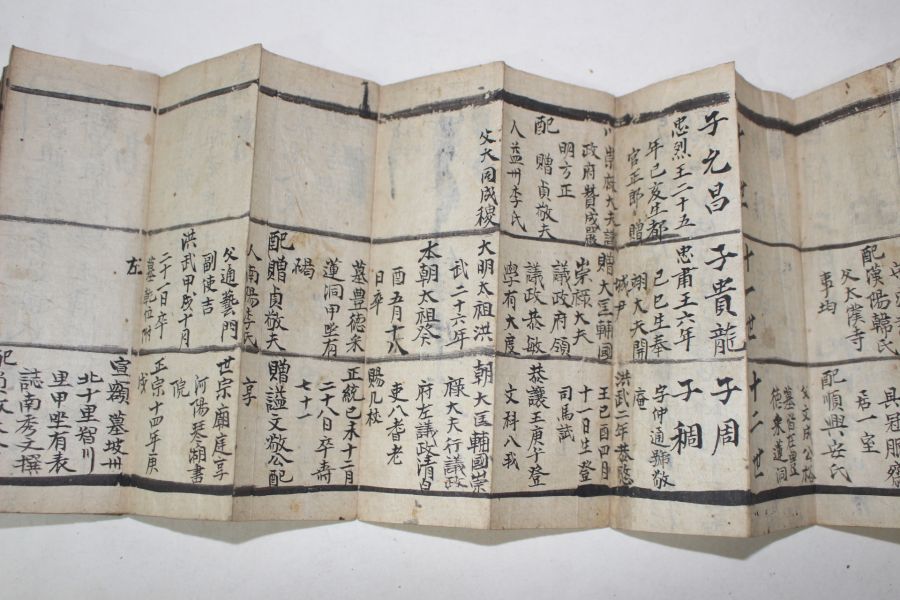 子元昌
忠烈王二十五
年己亥生都
官正郎贈
政府贊成
明方正
配贈貞敬夫
人益州李氏
父大同成稷
配漢陽韓氏
父太僕寺
事均
十一世
子貴龍
忠肅王六年
己巳生奉
翊大夫開
城尹
贈大匡輔國
崇祿大夫
議政府領
議政恭敏
學有大度
大明太祖洪
武二十六年
本朝太祖癸
酉五月十八
日卒
墓豊德米
蓮洞甲坐有
碣
配贈貞敬夫
人南陽李氏
父通藝門
副使吉
洪武甲戌十月
二十一日卒
墓乾位附
左
具冠服齋
居一室
配順興安氏
父文成公
德東蓮洞
十二世
子周
子稠
字仲通號敬
庵
洪武二年恭愍
王己酉四月
十一日生登
司馬試
恭讓王庚午登
文科八我
朝大匡輔國崇
祿大夫行議政
府左議政清白
吏八耆老
賜几杖
正統己未十二月
二十八日卒壽
七十一
贈謚文敬公配
享
世宗廟庭享
河陽琴湖書
院
正宗十四年庚
戌
宣額 墓坡州
北十里智川
里甲坐有表
誌南秀文撰